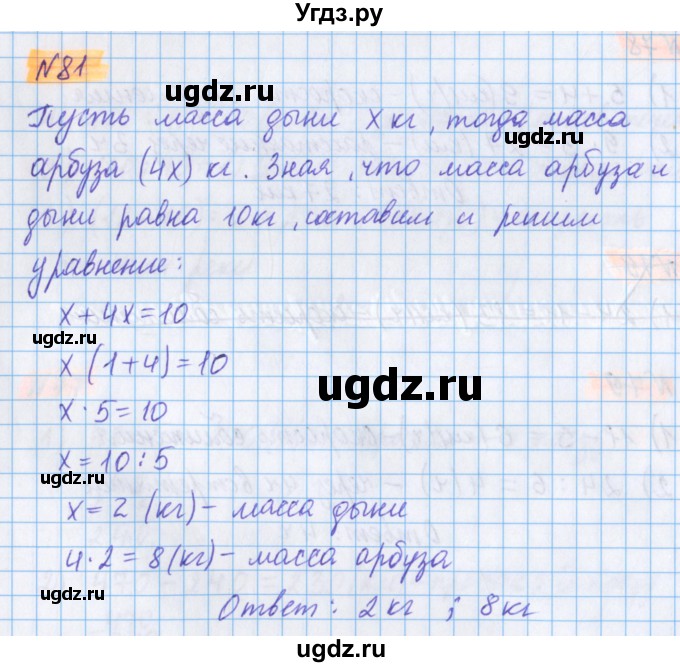 Угdз.ру
№81
ugdz.ru
Пусть масса дыни x кг, тогда масса
арбуза (4x) кг. Зная, что масса арбуза и
дыни равна 10кг, составим и решим
уравнение:
ugdz.ru
x+4x=10
ugdz.ru
x(1+4)=10
ugdz.ru
x·5=10
x=10:5
ugdz.ru
x=2 (кг) – масса дыни
4·2=8(кг) – масса арбуза
ugdz.ru
ugdz.ru
Ответ: 2кг ; 8кг
ugdz.ru